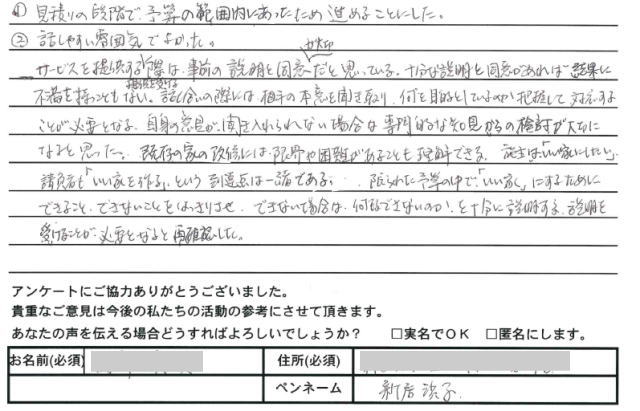 ① 見積りの段階で、予算の範囲内にあったため進めることにした。
② 話しやすい雰囲気でよかった。
サービスを提供する際は、事前の説明と同意が大切だと思っている。十分な説明と同意があれば結果に
不満を持つこともない。話し合いの際には相手の本意を聞き取り、何を目的としているのか把握して対応する
ことが必要となる。自身の意見が聞き入れられない場合は専門的な知見からの検討が大切に
なると思った。既存の家の改修には、限界や困難があることも理解できる。施主は「いい家にしたい」、
請負者も「いい家を作る」という到達点は一緒である。限られた予算の中で、「いい家」にするために
できること、できないことをはっきりさせ、できない場合は、何故できないのか、を十分に説明する、説明を
受けることが必要となると再確認した。
アンケートにご協力ありがとうございました。
貴重なご意見は今後の私たちの活動の参考にさせて頂きます。
あなたの声を伝える場合どうすればよろしいでしょうか？ □実名でOK □匿名にします。
お名前(必須) 住所(必須)
ペンネーム 新居